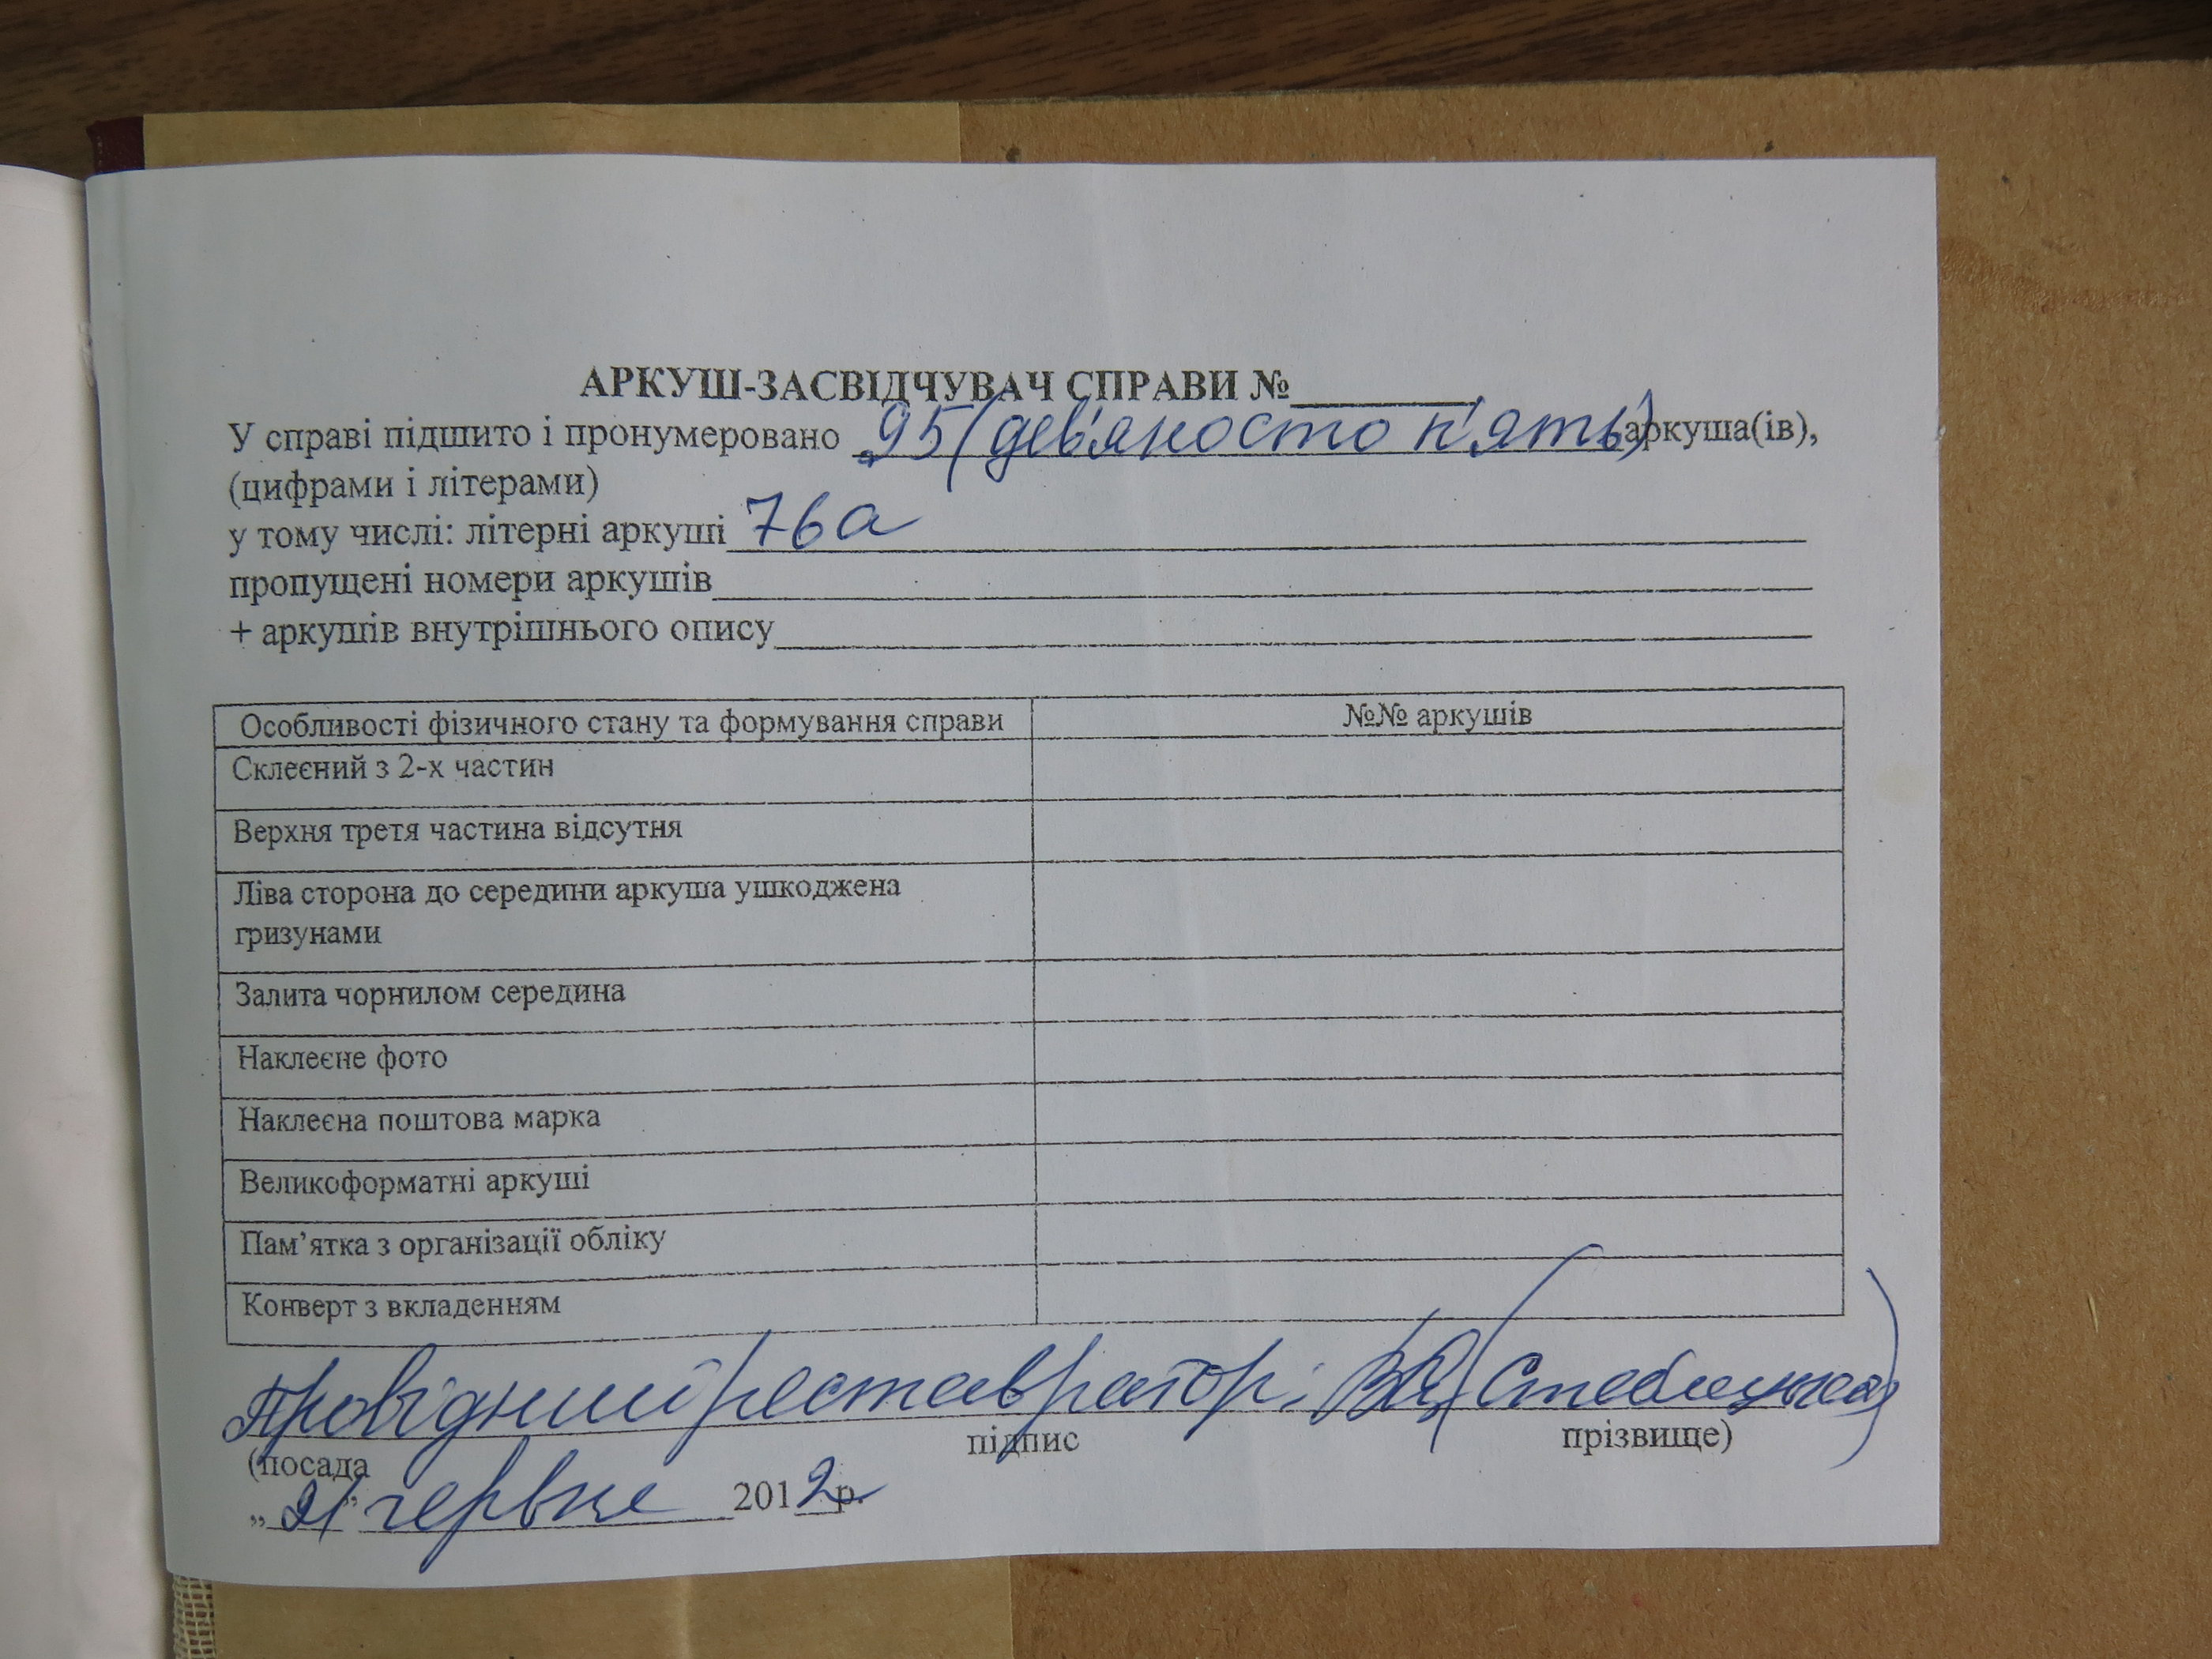 АРКУШ-ЗАСВІДЧУВАЧ СПРАВИ №
У справі підшито і пронумеровано 95 (дев'яносто п'ять) аркуша(ів),
(цифрами і літерами)
у тому числі: літерні аркуші 76а
пропущені номери аркушів
+ аркушів внутрішнього опису
Особливості фізичного стану та формування справи №№ аркушів
Склеєний з 2-х частин
Верхня третя частина відсутня
Ліва сторона до середини аркуша ушкоджена
гризунами
Залита чорнилом середина
Наклеєне фото
Наклеєна поштова марка
Великоформатні аркуші
Пам’ятка з організації обліку
Конверт з вкладенням
Провідний реставратор:
(посада підпис прізвище)
„21” червня 2012 р.